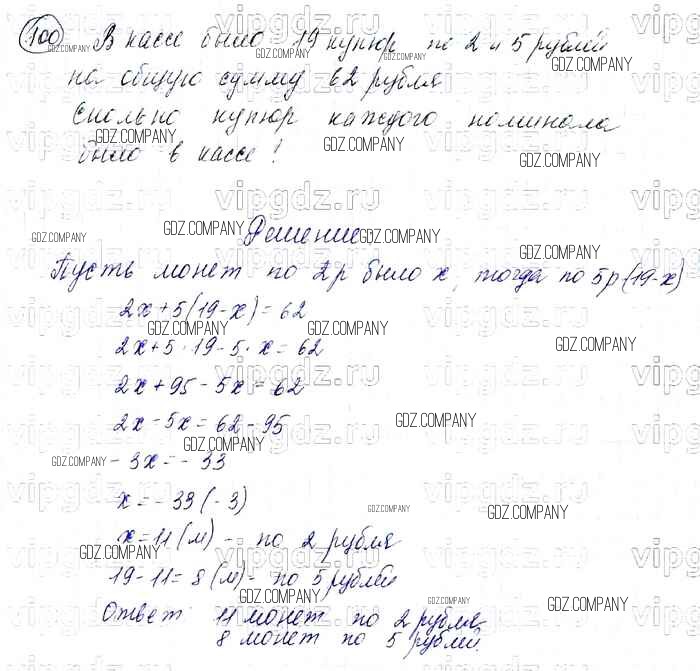 100 В кассе было 19 купюр по 2 и 5 рублей
на общую сумму 62 рубля
Сколько купюр каждого номинала
было в кассе?
Решение
Пусть монет по 2р было x, тогда по 5р (19-x)
2x+5(19-x)=62
2x+5·19-5·x=62
2x+95-5x=62
2x-5x=62-95
-3x=-33
x=-33(-3)
x=11(м) - по 2 рубля
19-11=8(м)- по 5 рублей
Ответ 11 монет по 2 рубля
8 монет по 5 рублей.